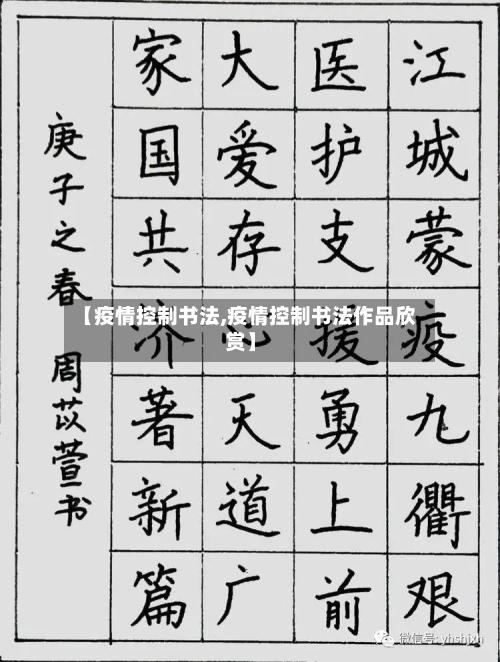 江城蒙疫九衢艰
医护支援勇上前
大爱存心天道广
家国共济著新篇
庚子之春 周苡萱书
【疫情控制书法,疫情控制书法作品欣
赏】
微信号: